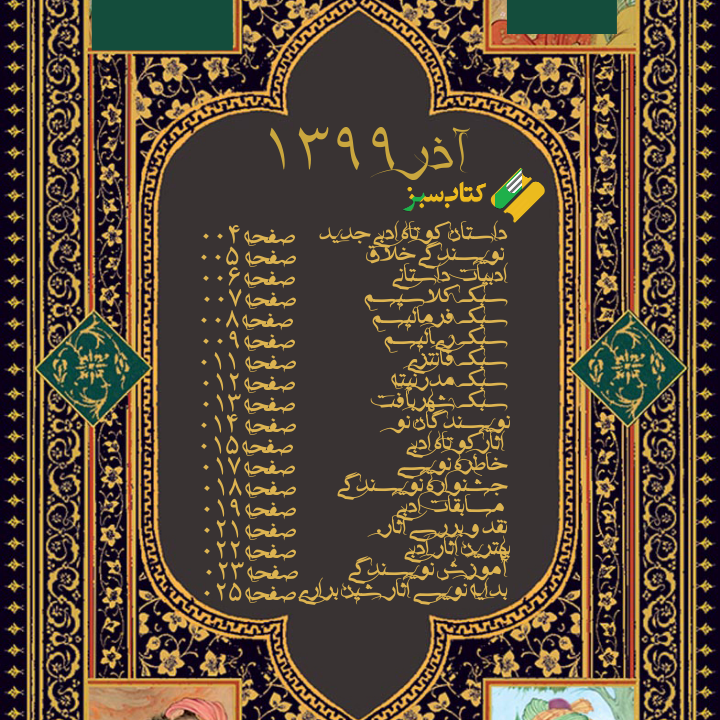 آذر ۱۳۹۹
کتاب سبز
داستان کوتاه ادبی جدید صفحه ۰۰۴
نویسندگی خلاق صفحه ۰۰۵
ادبیات داستانی صفحه ۰۰۶
سبک کلاسیسم صفحه ۰۰۷
سبک فرمالیسم صفحه ۰۰۸
سبک رئالیسم صفحه ۰۰۹
سبک فانتزی صفحه ۰۱۱
سبک مدرنیته صفحه ۰۱۲
سبک شهربافت صفحه ۰۱۳
نویسندگان نو صفحه ۰۱۴
آثار کوتاه ادبی صفحه ۰۱۵
خاطره نویسی صفحه ۰۱۷
جشنواره نویسندگی صفحه ۰۱۸
مسابقات ادبی صفحه ۰۱۹
نقد و بررسی آثار صفحه ۰۲۱
بهترین آثار ادبی صفحه ۰۲۲
آموزش نویسندگی صفحه ۰۲۳
بداهه نویسی آثار شین براری صفحه ۰۲۵